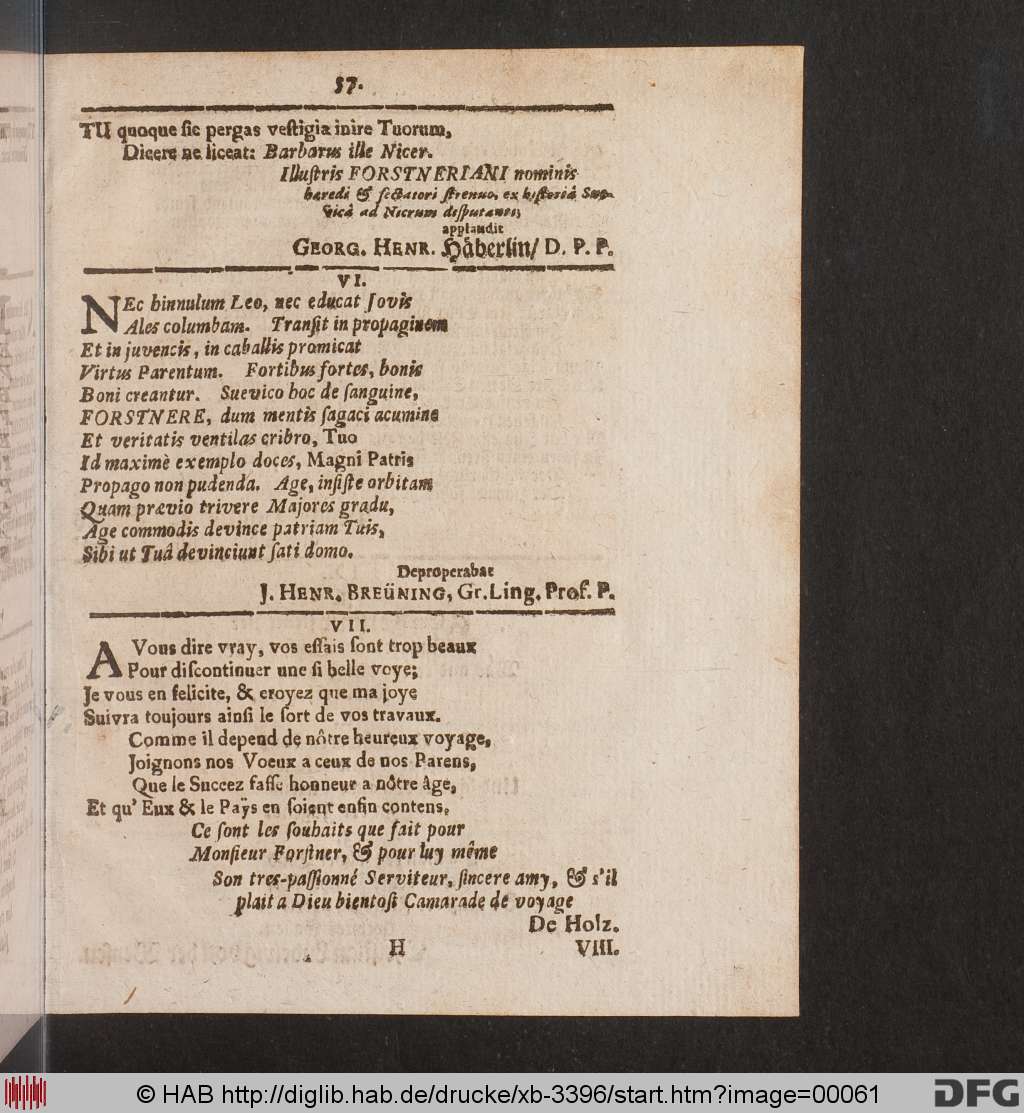 57.
TU quoque ſic pergas veſtigia inire Tuorum,
Dicere ne liceat: Barbarus ille Nicer.
Illuſtris FORSTNERIANI nominis
hæredi & ſectatori ſtrenuo, ex hiſtoriâ Sue-
vicâ ad Nicrum diſputanti,
applaudit
GEORG. HENR. Häberlin/ D. P. P.
VI.
NEc hinnulum Leo, nec educat Jovis
Ales columbam. Tranſit in propaginem
Et in juvencis, in caballis promicat
Virtus Parentum. Fortibus fortes, bonis
Boni creantur. Suevico hoc de ſanguine,
FORSTNERE, dum mentis ſagaci acumine
Et veritatis ventilas cribro, Tuo
Id maximè exemplo doces, Magni Patris
Propago non pudenda. Age, inſiſte orbitam
Quam prævio trivere Majores gradu,
Age commodis devince patriam Tuis,
Sibi ut Tuâ devinciunt ſati domo.
Deproperabat
J. HENR. BREÜNING, Gr. Ling. Prof. P.
VII.
A Vous dire vray, vos eſſais ſont trop beaux
Pour diſcontinuer une ſi belle voye;
Je vous en felicite, & croyez que ma joye
Suivra toujours ainſi le ſort de vos travaux.
Comme il depend de nôtre heureux voyage,
Joignons nos Voeux a ceux de nos Parens,
Que le Succez faſſe honneur a nôtre âge,
Et qu' Eux & le Païs en ſoient enfin contens.
Ce ſont les ſouhaits que fait pour
Monſieur Forſtner, & pour luy même
Son tres-paſſionné Serviteur, ſincere amy, & s'il
plait a Dieu bientoſt Camarade de voyage
De Holz.
H VIII.
© HAB http://diglib.hab.de/drucke/xb-3396/start.htm?image=00061
DFG